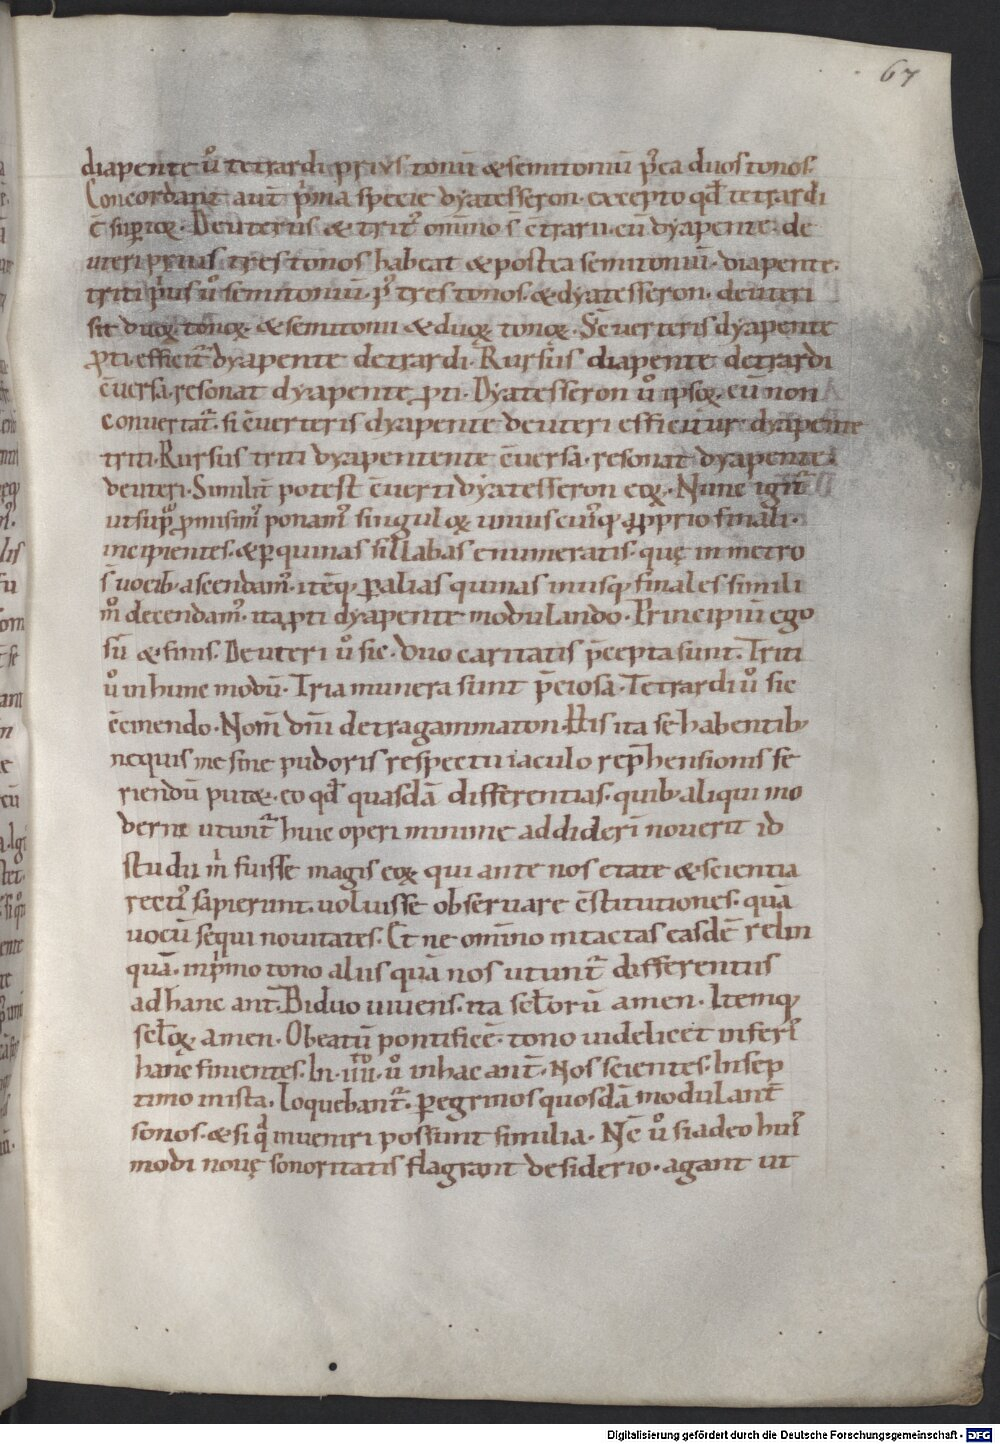 67
diapente ů tetrardi prius tonū & semitoniū p̄ea duos tonos.
Concordant aut̄ p̄ma specie dyatesseron. excepto qđ tetrardi
ē supioꝝ. Deuterus & trit᾽ om̄ino s̄ c̄trarii. cū dyapente de
uteri prius tres tonos habeat & postea semitoniū. diapente.
triti p̄us ů semitoniū. p᾽ tres tonos. & dyatesseron. deuteri
sit duoꝝ. tonoꝝ. & semitonii & duoꝝ tonoꝝ. Sēuerteris dyapente
ꝓti. efficit᾽ dyapente detrardi. Rursus diapente detrardi
c̄uersa. resonat dyapente ꝓti. Dyatesseron ů ipsoꝝ. cū non
conuertat᾽. si c̄uerteris dyapente deuteri efficitur dyapente
triti. Rursus triti dyapentente c̄uersa. resonat dyapente.
deuteri. Similit̄ potest c̄uerti dyatesseron eoꝝ. Nunc igit᾽
ut supͣ ꝓmisim᾽ ponam᾽ singuloꝝ unius cui᾽q; aꝓprio finali.
incipientes. & ꝑ quinas sillabas enumeratis. quę in metro
s̄ uocib; ascendam᾽. itēq; ꝑ alias quinas inusq; finales simili
m̊ decendam᾽. ita ꝓti dyapente modulando. Principiū ego
sū & finis. Deuteri ů sic. duo caritatis p̄cepta sunt. Triti
ů in hunc modū. Tria munera sunt p̄ciosa. Tetrardi ů sic
c̄cinendo. Nom̄ dn̄i detragammaton. His ita se habentib;
nequis me sine pudoris respectu iaculo rep̄hensionis fe
riendū putæ. eo qđ quasdā differentias. quib; aliqui mo
derni utunt᾽ huic operi minime addideri noverit id
studii m̄ fuisse magis eoꝝ qui ante nos etate & scientia
recti᾽ sapierunt. uoluisse obseruare c̄stitutiones. quā
uocū sequi nouitates. Et ne om̄ino intactas easdē relin
quā. inp̄mo tono aliis quā nos utunt᾽ differentiis
ad hanc ant̄. Biduo uiuens. ita seĺorū amen. Itemq;
seĺoꝝ amen. O beatū pontificē. tono uidelicet inferi᾽
hanc finientes. In .iiii͞to. ů in hac ant̄. Nos scientes. In sep
timo in ista. Loquebant᾽. ꝑegrinos quosdā modulant̄
sonos. & si q̄ inueniri possunt similia. Nē ů si adeo hui᾽
modi nouę sonoritatis flagrant desiderio. agant ut
Digitalisierung gefördert durch die Deutsche Forschungsgemeinschaft - DFG